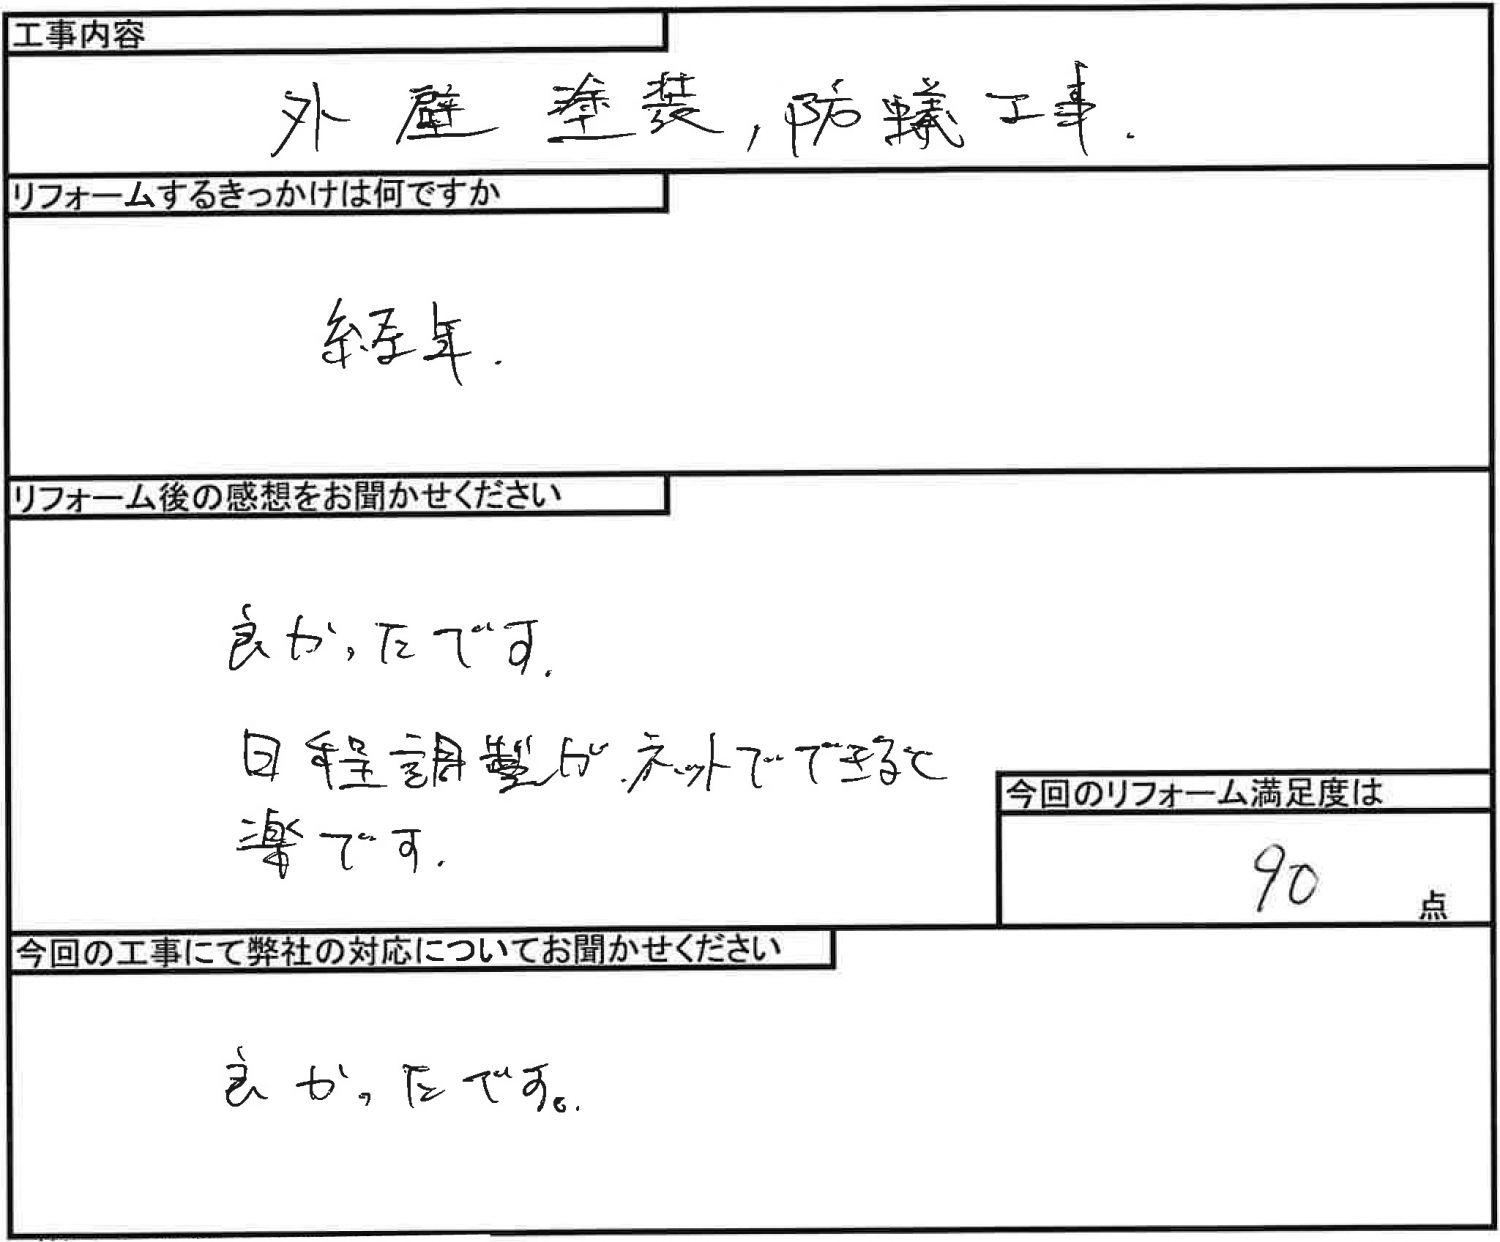 工事内容
外壁塗装,防蟻工事.
リフォームするきっかけは何ですか
経年.
リフォーム後の感想をお聞かせください
良かったです.
日程調整がネットでできると
楽です.
今回のリフォーム満足度は
90点
今回の工事にて弊社の対応についてお聞かせください
良かったです。